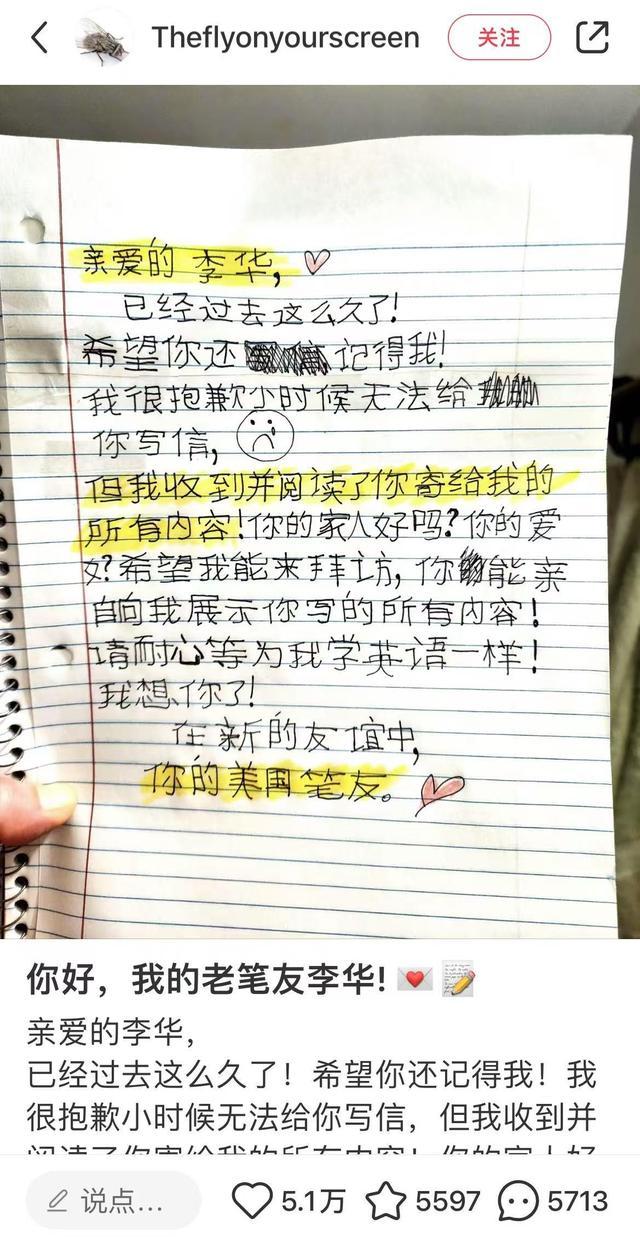 Theflyonyourscreen
关注
亲爱的 李华,
已经过去这么久了!
希望你还 记得我!
我很抱歉小时候无法给
你写信,
但我收到并阅读了你寄给我的
所有内容!你的家人好吗?你的爱
好?希望我能来拜访,你能亲
自向我展示你写的所有内容!
请耐心等为我学英语一样!
我想你了!
在新的友谊中,
你的美国笔友。
你好，我的老笔友李华!
亲爱的李华，
已经过去这么久了！希望你还记得我！我
很抱歉小时候无法给你写信，但我收到并
阅读了你寄给我的所有内容！你的家人好
说点...
5.1万
5597
5713